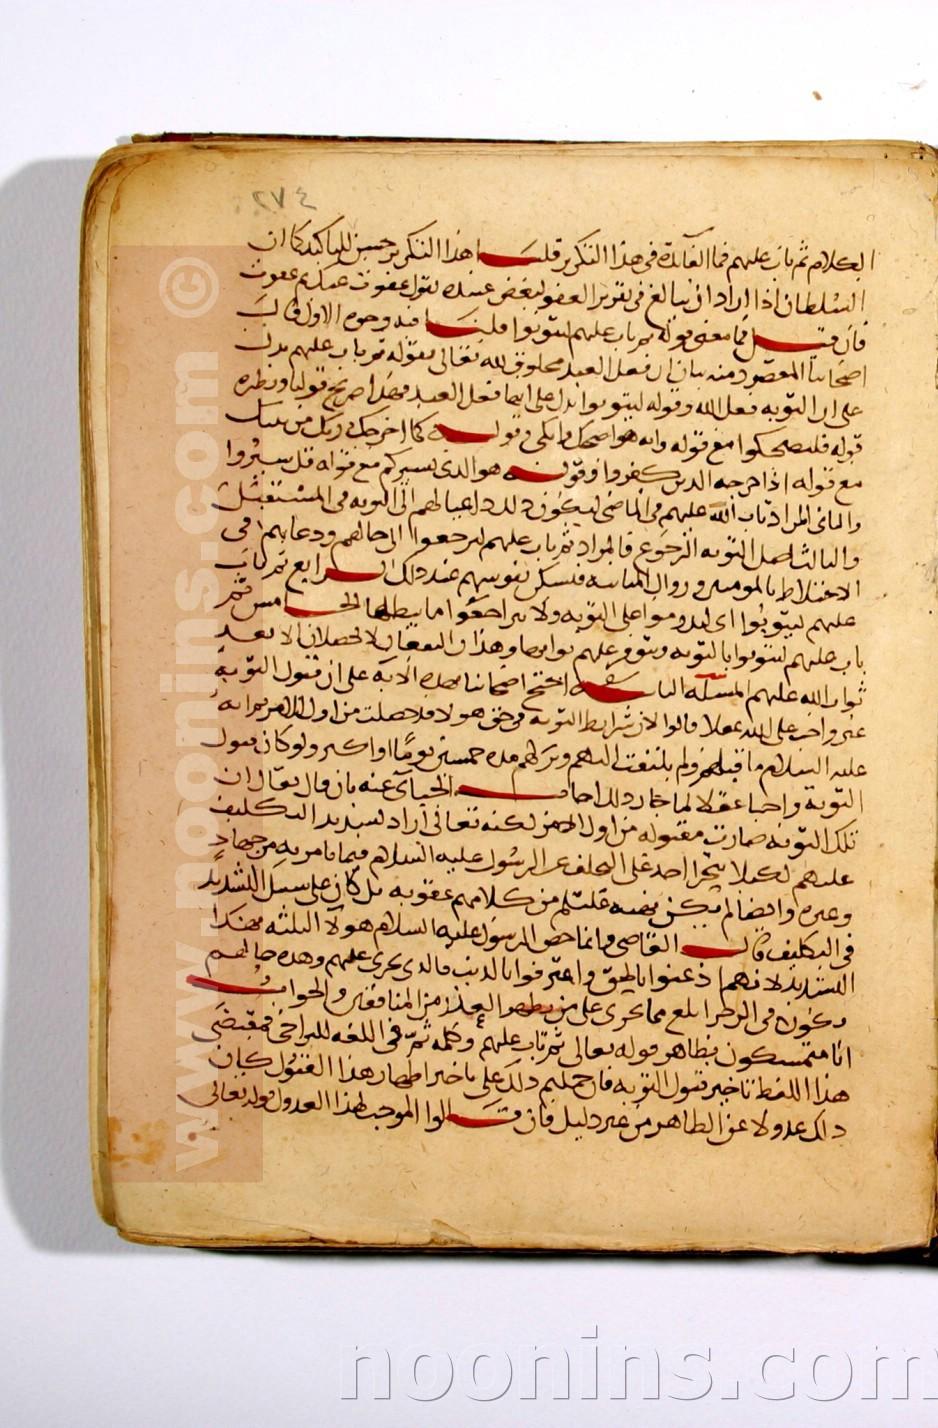 ٢٧٤
الكلام ثم تاب عليهم فما الفآئدة فى هذا التكرير قلنا هذا التكرير حسن للتاكيد كما ان
السلطان اذا اراد ان يبالغ فى تقرير العفو لبعض عبيده يقول عفوت عنك ثم عفوت
فان قيل فما معنى قوله ثم تاب عليهم ليتوبوا قلنا فيه وجوه الاول قالت
اصحابنا المقصود منه بيان ان فعل العبد مخلوق لله تعالى فقوله ثم تاب عليهم يدل
على ان التوبه فعل الله وقوله ليتوبوا يدل على انها فعل العبد فهذا صريح قولنا ونظيره
قوله فليضحكوا مع قوله وانه هو اضحك وابكى وقوله كما اخرجك ربك من بيتك
مع قوله اذ اخرجه الذين كفروا وقوله هو الذى يسيركم مع قوله قل سيروا
والثانى المراد تاب الله عليهم فى الماضى ليكون ذلك داعيا لهم الى التوبه فى المستقبل
والثالث اصل التوبه الرجوع فالمراد ثم تاب عليهم ليرجعوا الى حالهم وعادتهم فى
الاختلاط بالمومنين وزوال المباينه فتسكن نفوسهم عند ذلك الرابع ثم تاب
عليهم ليتوبوا اى ليدوموا على التوبه ولا يراجعوا ما يبطلها الخامس ثم
تاب عليهم لينتفعوا بالتوبه ويتوفر عليهم ثوابها وهذان النفعان لا يحصلان الا بعد
ثواب الله عليهم المسئله الثانيه احتج اصحابنا بهذه الآيه على ان قبول التوبه
غير واجب على الله عقلا قالوا لان شرايط التوبه فى حق هولا قد حصلت من اول الامر ثم انه
عليه السلام ما قبلهم ولم يلتفت اليهم وتركهم مده خمسين يوما او اكثر ولو كان قبول
التوبة واجبا عقلا لما جاز ذلك اجاب الجبائى عنه بان قال يقال ان
تلك التوبه صارت مقبوله من اول الامر لكنه تعالى اراد تشديد التكليف
عليهم لكيلا يتجرا احد على التخلف عن الرسول عليه السلام فيما يامر به من جهاد
وغيره وايضا لم يكن نهيه عليه السلام من كلامهم عقوبه بل كان على سبيل التشديد
فى التكليف قال القاضى وانما خص الرسول عليه السلام هولآ الثلثه بهذا
التشديد لانهم اذعنوا بالحق واعترفوا بالذنب فالذى يجرى عليهم وهذه حالهم
يكون فى الزجر ابلغ مما يجرى على من يظهر العذر من المنافقين والجواب
انا متمسكون بظاهر قوله تعالى ثم تاب عليهم وكلمه ثم فى اللغه للتراخى فمقتضى
هذا اللفظ تاخير قبول التوبه فان حملتم ذلك على تاخير اظهار هذا القبول كان
ذلك عدولا عن الظاهر من غير دليل فان قالوا الموجب لهذا العدول قوله تعالى
www.noonins.com ©
noonins.com